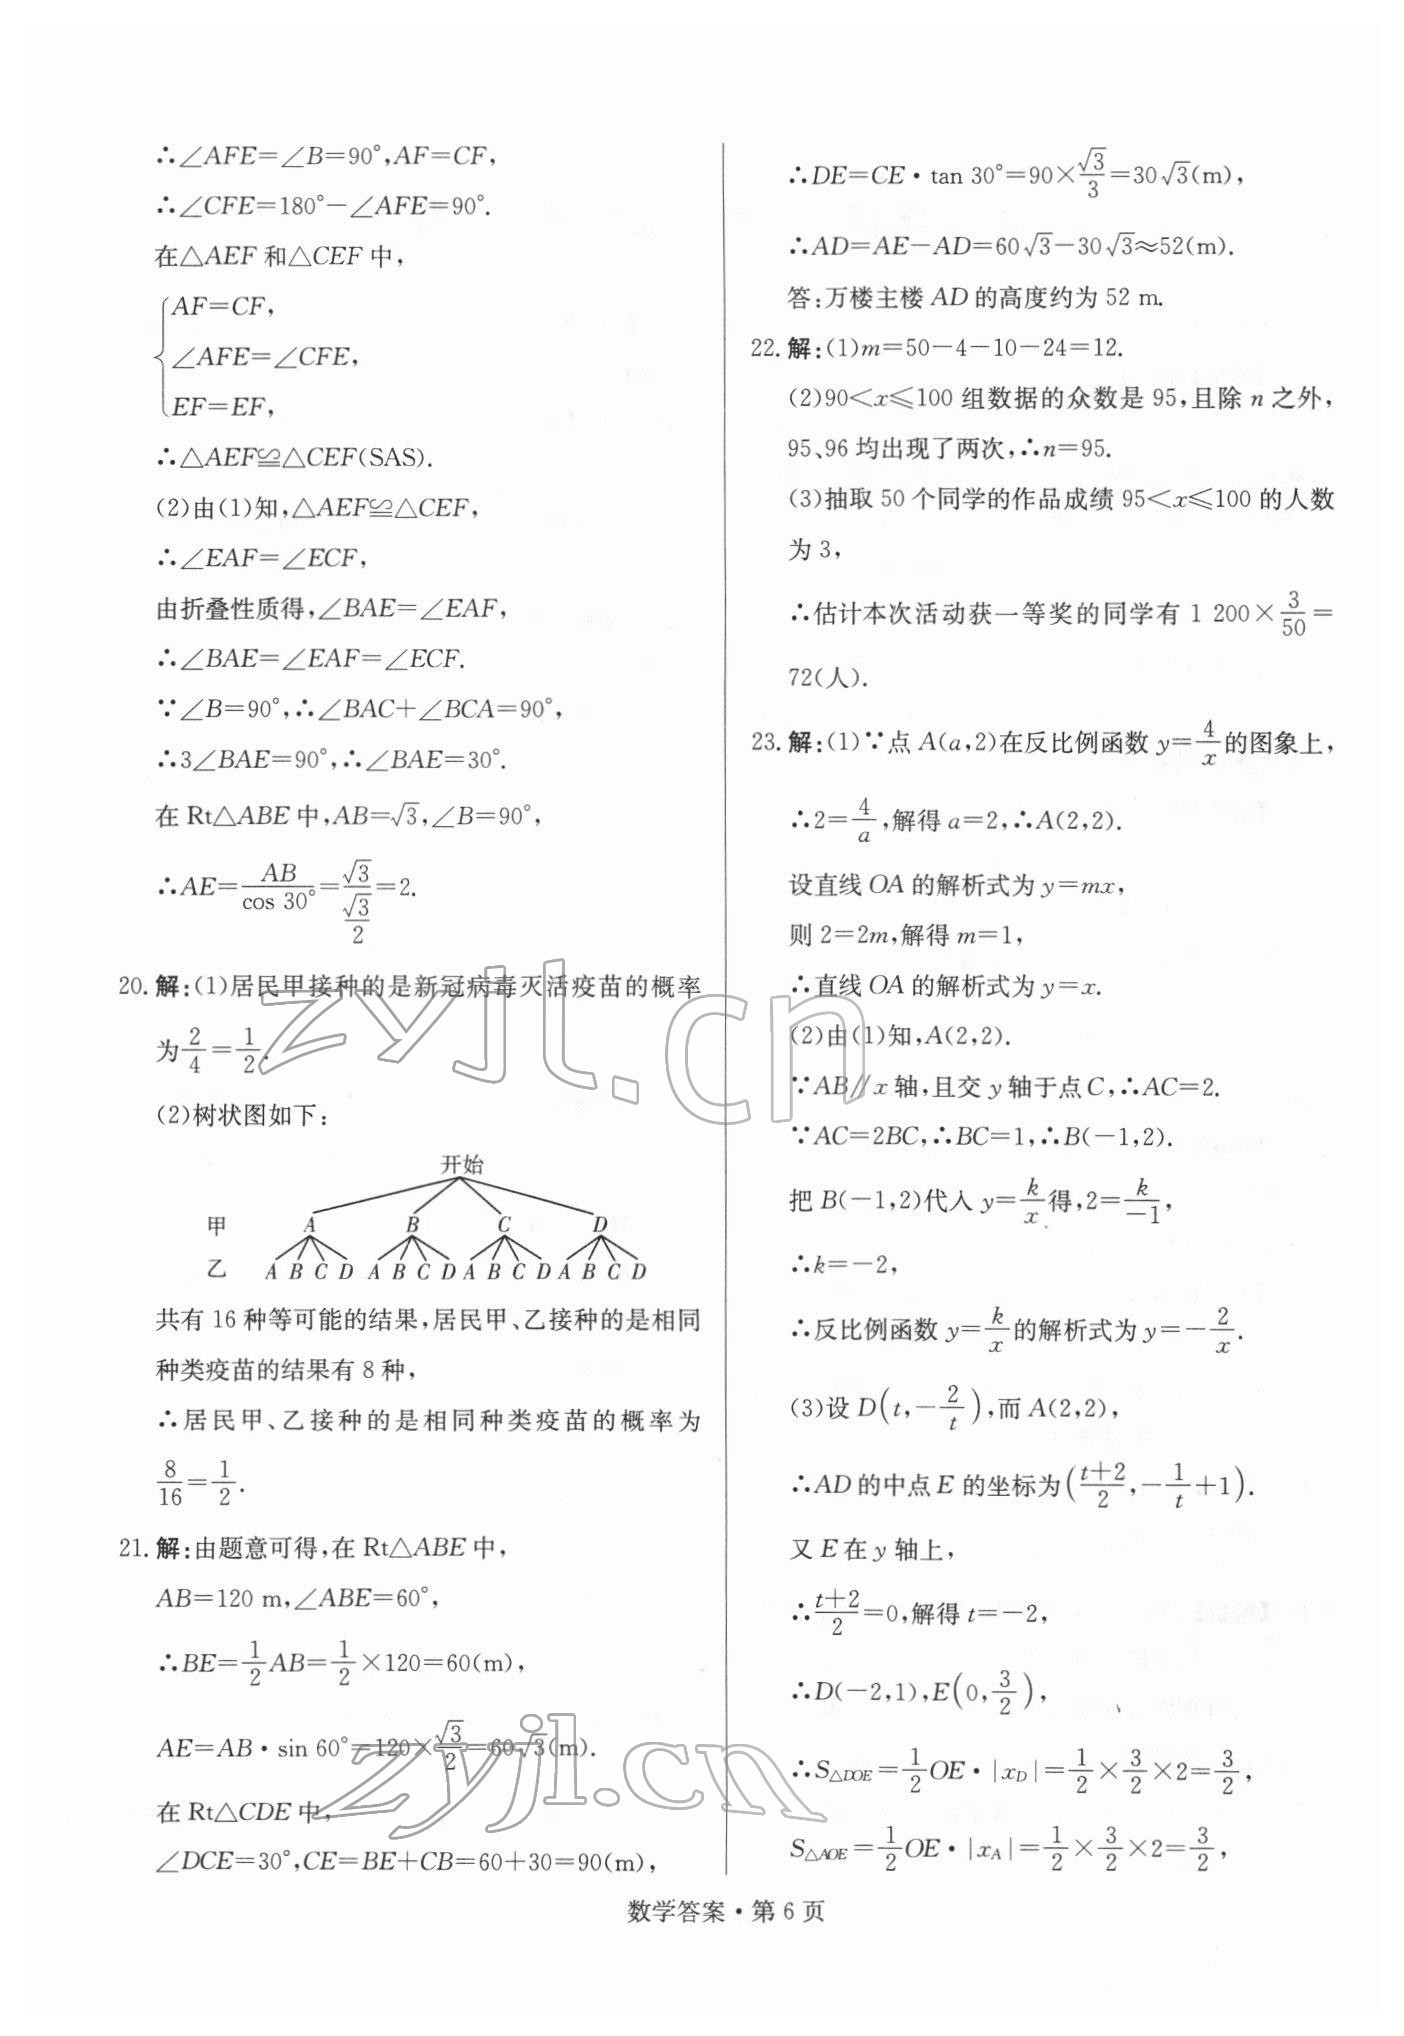 ∴∠AFE=∠B=90°,AF=CF,
∴∠CFE=180°-∠AFE=90°.
在△AEF 和△CEF 中,
AF=CF,
∠AFE=∠CFE,
EF=EF,
∴△AEF≌△CEF(SAS).
(2)由(1)知,△AEF≌△CEF,
∴∠EAF=∠ECF,
由折叠性质得,∠BAE=∠EAF,
∴∠BAE=∠EAF=∠ECF.
∵∠B=90°,∴∠BAC+∠BCA=90°,
∴3∠BAE=90°,∴∠BAE=30°.
在 Rt△ABE 中,AB=√3,∠B=90°,
∴AE=AB/cos 30°=√3/(√3/2)=2.
20. 解:(1)居民甲接种的是新冠病毒灭活疫苗的概率
为2/4=1/2.
(2)树状图如下:
开始
甲 A B C D
乙 A B C D A B C D A B C D A B C D
共有 16 种等可能的结果,居民甲、乙接种的是相同
种类疫苗的结果有 8 种,
∴居民甲、乙接种的是相同种类疫苗的概率为
8/16=1/2.
21. 解:由题意可得,在 Rt△ABE 中,
AB=120 m,∠ABE=60°,
∴BE=1/2AB=1/2×120=60(m),
AE=AB·sin 60°=120×√3/2=60√3(m).
在 Rt△CDE 中,
∠DCE=30°,CE=BE+CB=60+30=90(m),
∴DE=CE·tan 30°=90×√3/3=30√3(m),
∴AD=AE-AD=60√3-30√3≈52(m).
答:万楼主楼 AD 的高度约为 52 m.
22. 解:(1)m=50-4-10-24=12.
(2)90<x≤100 组数据的众数是 95,且除 n 之外,
95、96 均出现了两次,∴n=95.
(3)抽取 50 个同学的作品成绩 95<x≤100 的人数
为 3,
∴估计本次活动获一等奖的同学有 1 200×3/50=
72(人).
23. 解:(1)∵点 A(a,2)在反比例函数 y=4/x的图象上,
∴2=4/a,解得 a=2,∴A(2,2).
设直线 OA 的解析式为 y=mx,
则 2=2m,解得 m=1,
∴直线 OA 的解析式为 y=x.
(2)由(1)知,A(2,2).
∵AB∥x 轴,且交 y 轴于点 C,∴AC=2.
∵AC=2BC,∴BC=1,∴B(-1,2).
把 B(-1,2)代入 y=k/x得,2=k/-1,
∴k=-2,
∴反比例函数 y=k/x的解析式为 y=-2/x.
(3)设 D(t,-2/t),而 A(2,2),
∴AD 的中点 E 的坐标为(t+2/2,-1/t+1).
又 E 在 y 轴上,
∴t+2/2=0,解得 t=-2,
∴D(-2,1),E(0,3/2),
∴S△DOE=1/2OE·|xD|=1/2×3/2×2=3/2,
S△AOE=1/2OE·|xA|=1/2×3/2×2=3/2,
数学答案·第 6 页
zyjl.cn
zyjl.cn